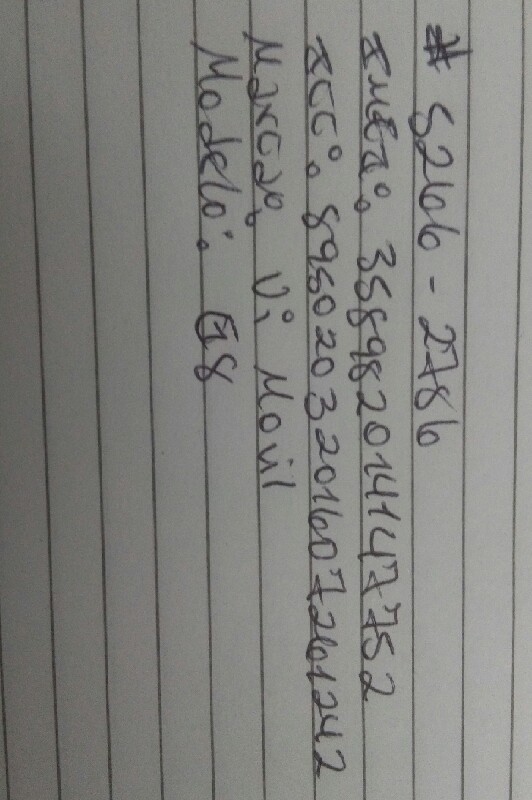 # 5266-2786
IMEI: 358982014147752
ICC: 8950203201607261242
Marca: Vi Movil
Modelo: G8